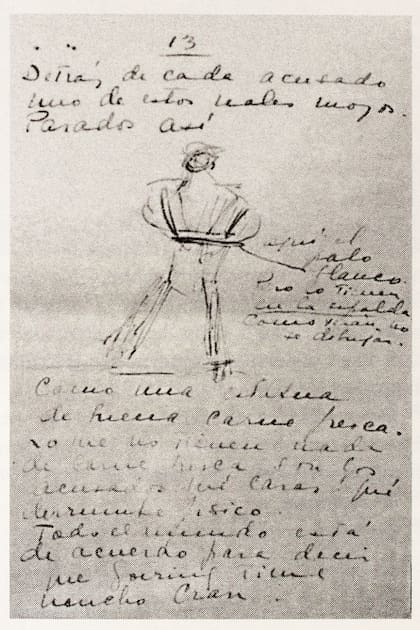 13
Detrás de cada acusado
uno de estos reales mozos.
Parados así
aquí el
palo
blanco.
Pero lo tienen
en la espalda
Como verán no
sé dibujar.
Como una estatua
de buena carne fresca.
Lo que no tienen nada
de carne fresca son los
acusados Qué caras! Qué
derrumbe físico.
Todo el mundo está
de acuerdo para decir
que Goering tiene
mucho Cran.